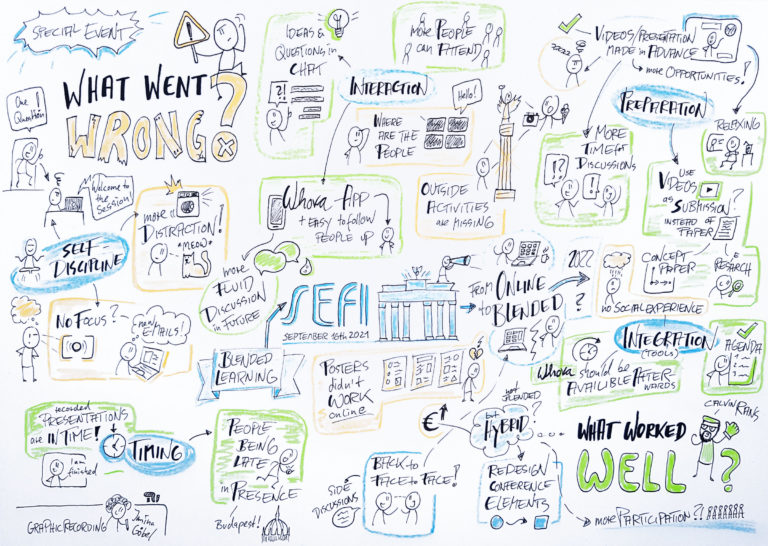 SPECIAL EVENT
WHAT WENT
WRONG?
One
Question
Welcome to
the Session!
SELF-
DISCIPLINE
more
DISTRACTION!
*MEOW*
NO FOCUS?
new
EMAILS!
IDEAS &
QUESTIONS in
CHAT
?!
MORE PEOPLE
CAN ATTEND
INTERACTION
Hello!
WHERE
ARE THE
PEOPLE
Whova-APP
+ EASY to follow
PEOPLE UP
OUTSIDE
ACTIVITIES
are MISSING
ZZZZ
VIDEOS/PRESENTATION
MADE in ADVANCE
more OPPORTUNITIES!
PREPARATION
RELAXING
MORE
TIME for
DISCUSSIONS
!?
!
USE
VIDEOS
as
SUBMISSION?
INSTEAD OF
PAPER
CONCEPT
PAPER
RESARCH
more
FLUID
DISCUSSION
in FUTURE
SEFI
SEPTEMBER 16th 2021
BLENDED
LEARNING
FROM ONLINE
to BLENDED
?
2022
no SOCIAL EXPERIENCE
INTEGRATION
(TOOLS)
AGENDA
1
2
3
Whova should be
AVAILIBLE AFTER-
WARDS
POSTERS
didn't
WORK
online
recorded
PRESENTATIONS
are IN TIME!
I am
finished
TIMING
PEOPLE
BEING
LATE
in PRESENCE
Budapest!
GRAPHIC RECORDING
€
not BLENDED
but
HYBRID
?
SIDE
DISCUSSIONS
BACK to
FACE to FACE!
REDESIGN
CONFERENCE
ELEMENTS
CALVIN RANS
WHAT WORKED
WELL?
more PARTICIPATION?!